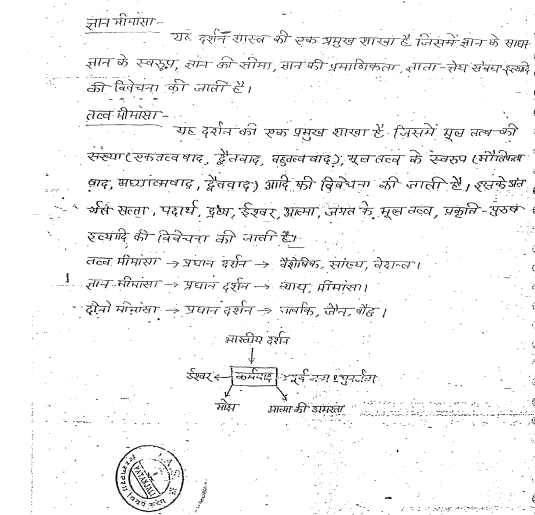 ज्ञान मीमांसा :-
यह दर्शन शास्त्र की एक प्रमुख शाखा है जिसमें ज्ञान के साधन
ज्ञान के स्वरूप, ज्ञान की सीमा, ज्ञान की प्रमाणिकता, ज्ञाता-ज्ञेय संबंध इत्यादि
की विवेचना की जाती है।
तत्व मीमांसा :-
यह दर्शन की एक प्रमुख शाखा है जिसमें मूल तत्व की
संख्या (एकतत्ववाद, द्वैतवाद, बहुतत्ववाद), मूल तत्व के स्वरूप (भौतिकता
वाद, अध्यात्मवाद, द्वैतवाद) आदि की विवेचना की जाती है। इसके अंत
र्गत सत्ता, पदार्थ, द्रव्य, ईश्वर, आत्मा, जगत के मूल तत्व, प्रकृति-पुरुष
इत्यादि की विवेचना की जाती है।
तत्व मीमांसा → प्रधान दर्शन → वैशेषिक, सांख्य, वेदान्त।
ज्ञान मीमांसा → प्रधान दर्शन → न्याय, मीमांसा।
दोनो मीमांसा → प्रधान दर्शन → चार्वाक, जैन, बौद्ध।
भारतीय दर्शन
ईश्वर ← कर्मवाद → पूर्व जन्म व पुनर्जन्म
मोक्ष आत्मा की अमरता
PATANJALI